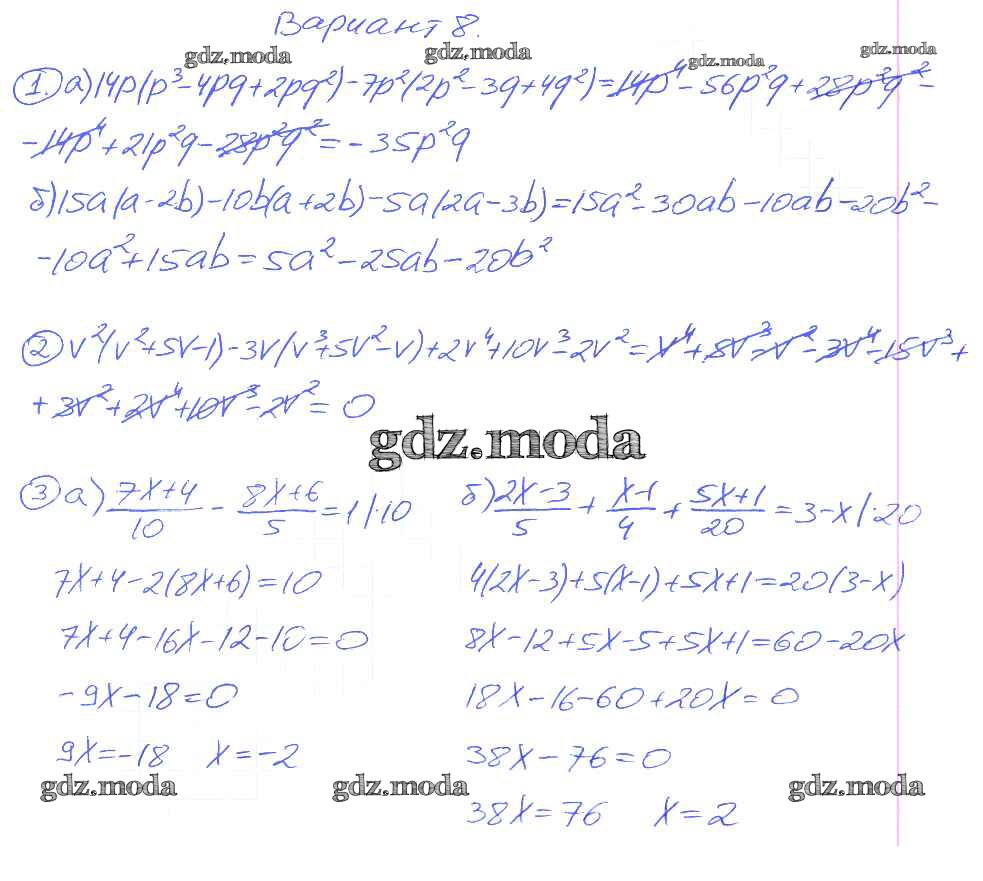 Вариант 8.
gdz.moda gdz.moda gdz.moda gdz.moda
1. а) 14p(p³-4pq+2pq²)-7p²(2p²-3q+4q²)=14p⁴-56p²q+28p²q²-
-14p⁴+21p²q-28p²q²=-35p²q
б) 15a(a-2b)-10b(a+2b)-5a(2a-3b)=15a²-30ab-10ab-20b²-
-10a²+15ab=5a²-25ab-20b²
2 v²(v²+5v-1)-3v(v³+5v²-v)+2v⁴+10v³-2v²=v⁴+5v³-v²-3v⁴-15v³+
+3v²+2v⁴+10v³-2v²=0
gdz.moda
3 а) (7x+4)/10 - (8x+6)/5 = 1 |·10
7x+4-2(8x+6)=10
7x+4-16x-12-10=0
-9x-18=0
9x=-18 x=-2
б) (2x-3)/5 + (x-1)/4 + (5x+1)/20 = 3-x |·20
4(2x-3)+5(x-1)+5x+1=20(3-x)
8x-12+5x-5+5x+1=60-20x
18x-16-60+20x=0
38x-76=0
gdz.moda gdz.moda gdz.moda
38x=76 x=2